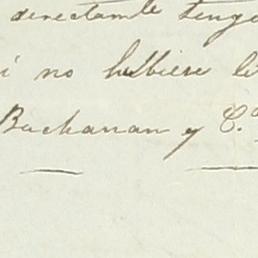 directamte tenga
i no hubiere li
Buchanan y C.a